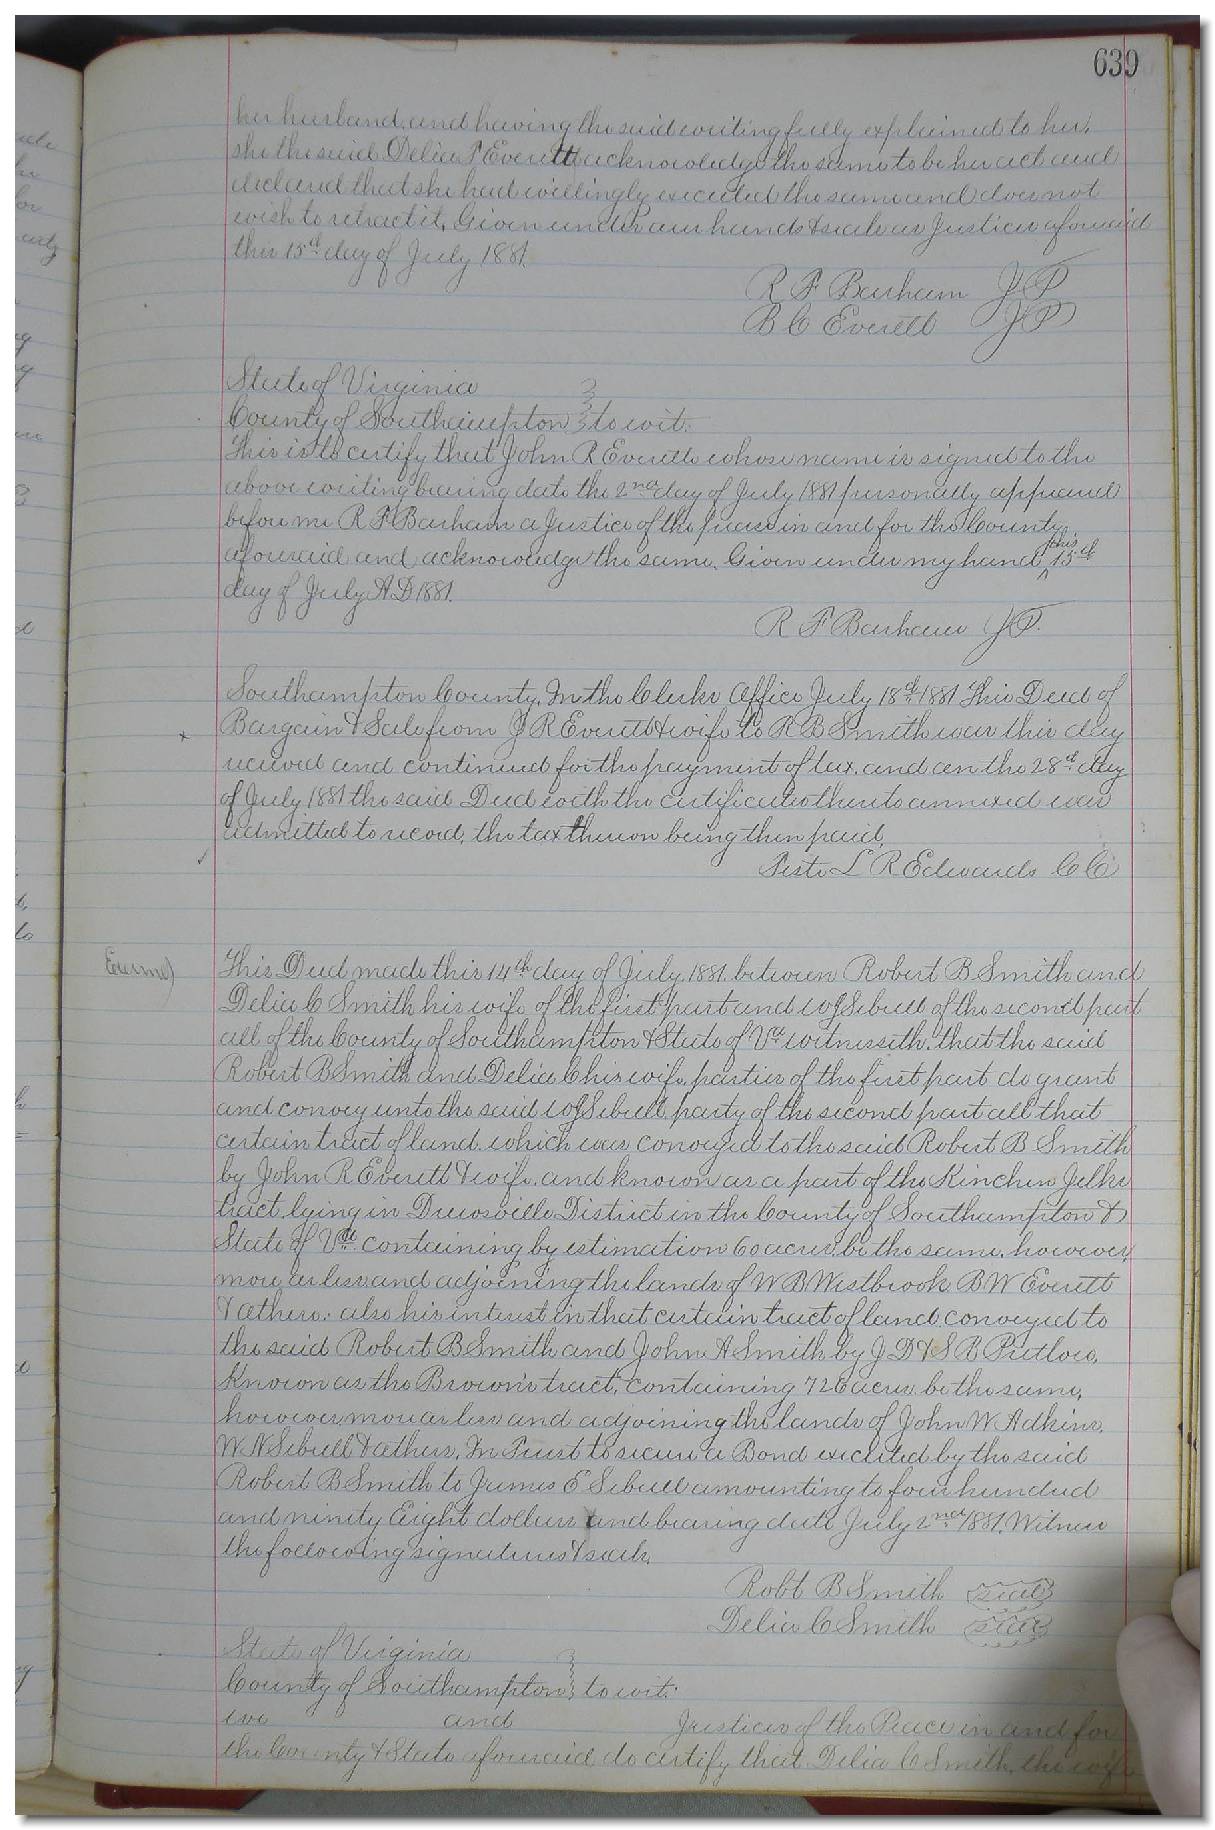 639
her husband and having the said writing fully explained to her,
she the said Delia P Everett acknowledge the same to be her act and
declared that she had willingly executed the same and does not
wish to retract it, Given under our hands & seals as Justices aforesaid
this 15th day of July 1881.
R F Barham JP
B C Everett JP
State of Virginia
County of Southampton to wit:
This is to certify that John R Everett whose name is signed to the
above writing bearing date the 2nd day of July 1881 personally appeared
before me R F Barham a Justice of the peace in and for the County
aforesaid and acknowledge the same. Given under my hand this 15th
day of July A D 1881.
R F Barham JP.
Southampton County, In the Clerks Office July 18th 1881 This Deed of
Bargain & Sale from J R Everett & wife to R B Smith was this day
received and continued for the payment of tax, and on the 28th day
of July 1881 the said Deed with the certificates thereto annexed was
admitted to record, the tax thereon being then paid,
Teste L R Edwards C C
This Deed made this 14th day of July 1881. between Robert B Smith and
Delia C Smith his wife of the first part and W J Sebrell of the second part
all of the County of Southampton & State of Va witnesseth, that the said
Robert B Smith and Delia C his wife, parties of the first part do grant
and convey unto the said W J Sebrell party of the second part all that
certain tract of land which was conveyed to the said Robert B Smith
by John R Everett & wife, and known as a part of the Kinchen Jelks
tract, lying in Drewsville District in the County of Southampton &
State of Va. containing by estimation 60 acres, be the same, however,
more or less and adjoining the lands of W B Westbrook, B W Everett
& others; also his interest in that certain tract of land, conveyed to
the said Robert B Smith and John A Smith by J D & S B Pretlow,
Known as the Brown's tract, containing 726 acres be the same,
however more or less and adjoining the lands of John W Adkins,
W N Sebrell & others, In Trust to secure a Bond executed by the said
Robert B Smith to James E Sebrell amounting to four hundred
and ninety Eight dollars and bearing date July 2nd 1881, Witness
the following signatures & seals.
Robt B Smith seal
Delia C Smith seal
State of Virginia
County of Southampton, to wit:
we and Justices of the Peace in and for
the County & State aforesaid do certify that Delia C Smith, the wife